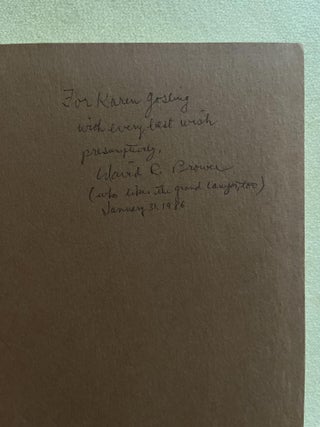 For Karen Gosling
with every best wish
presumptively,
David R. Brower
(who likes the grand canyon, too)
January 31, 1986